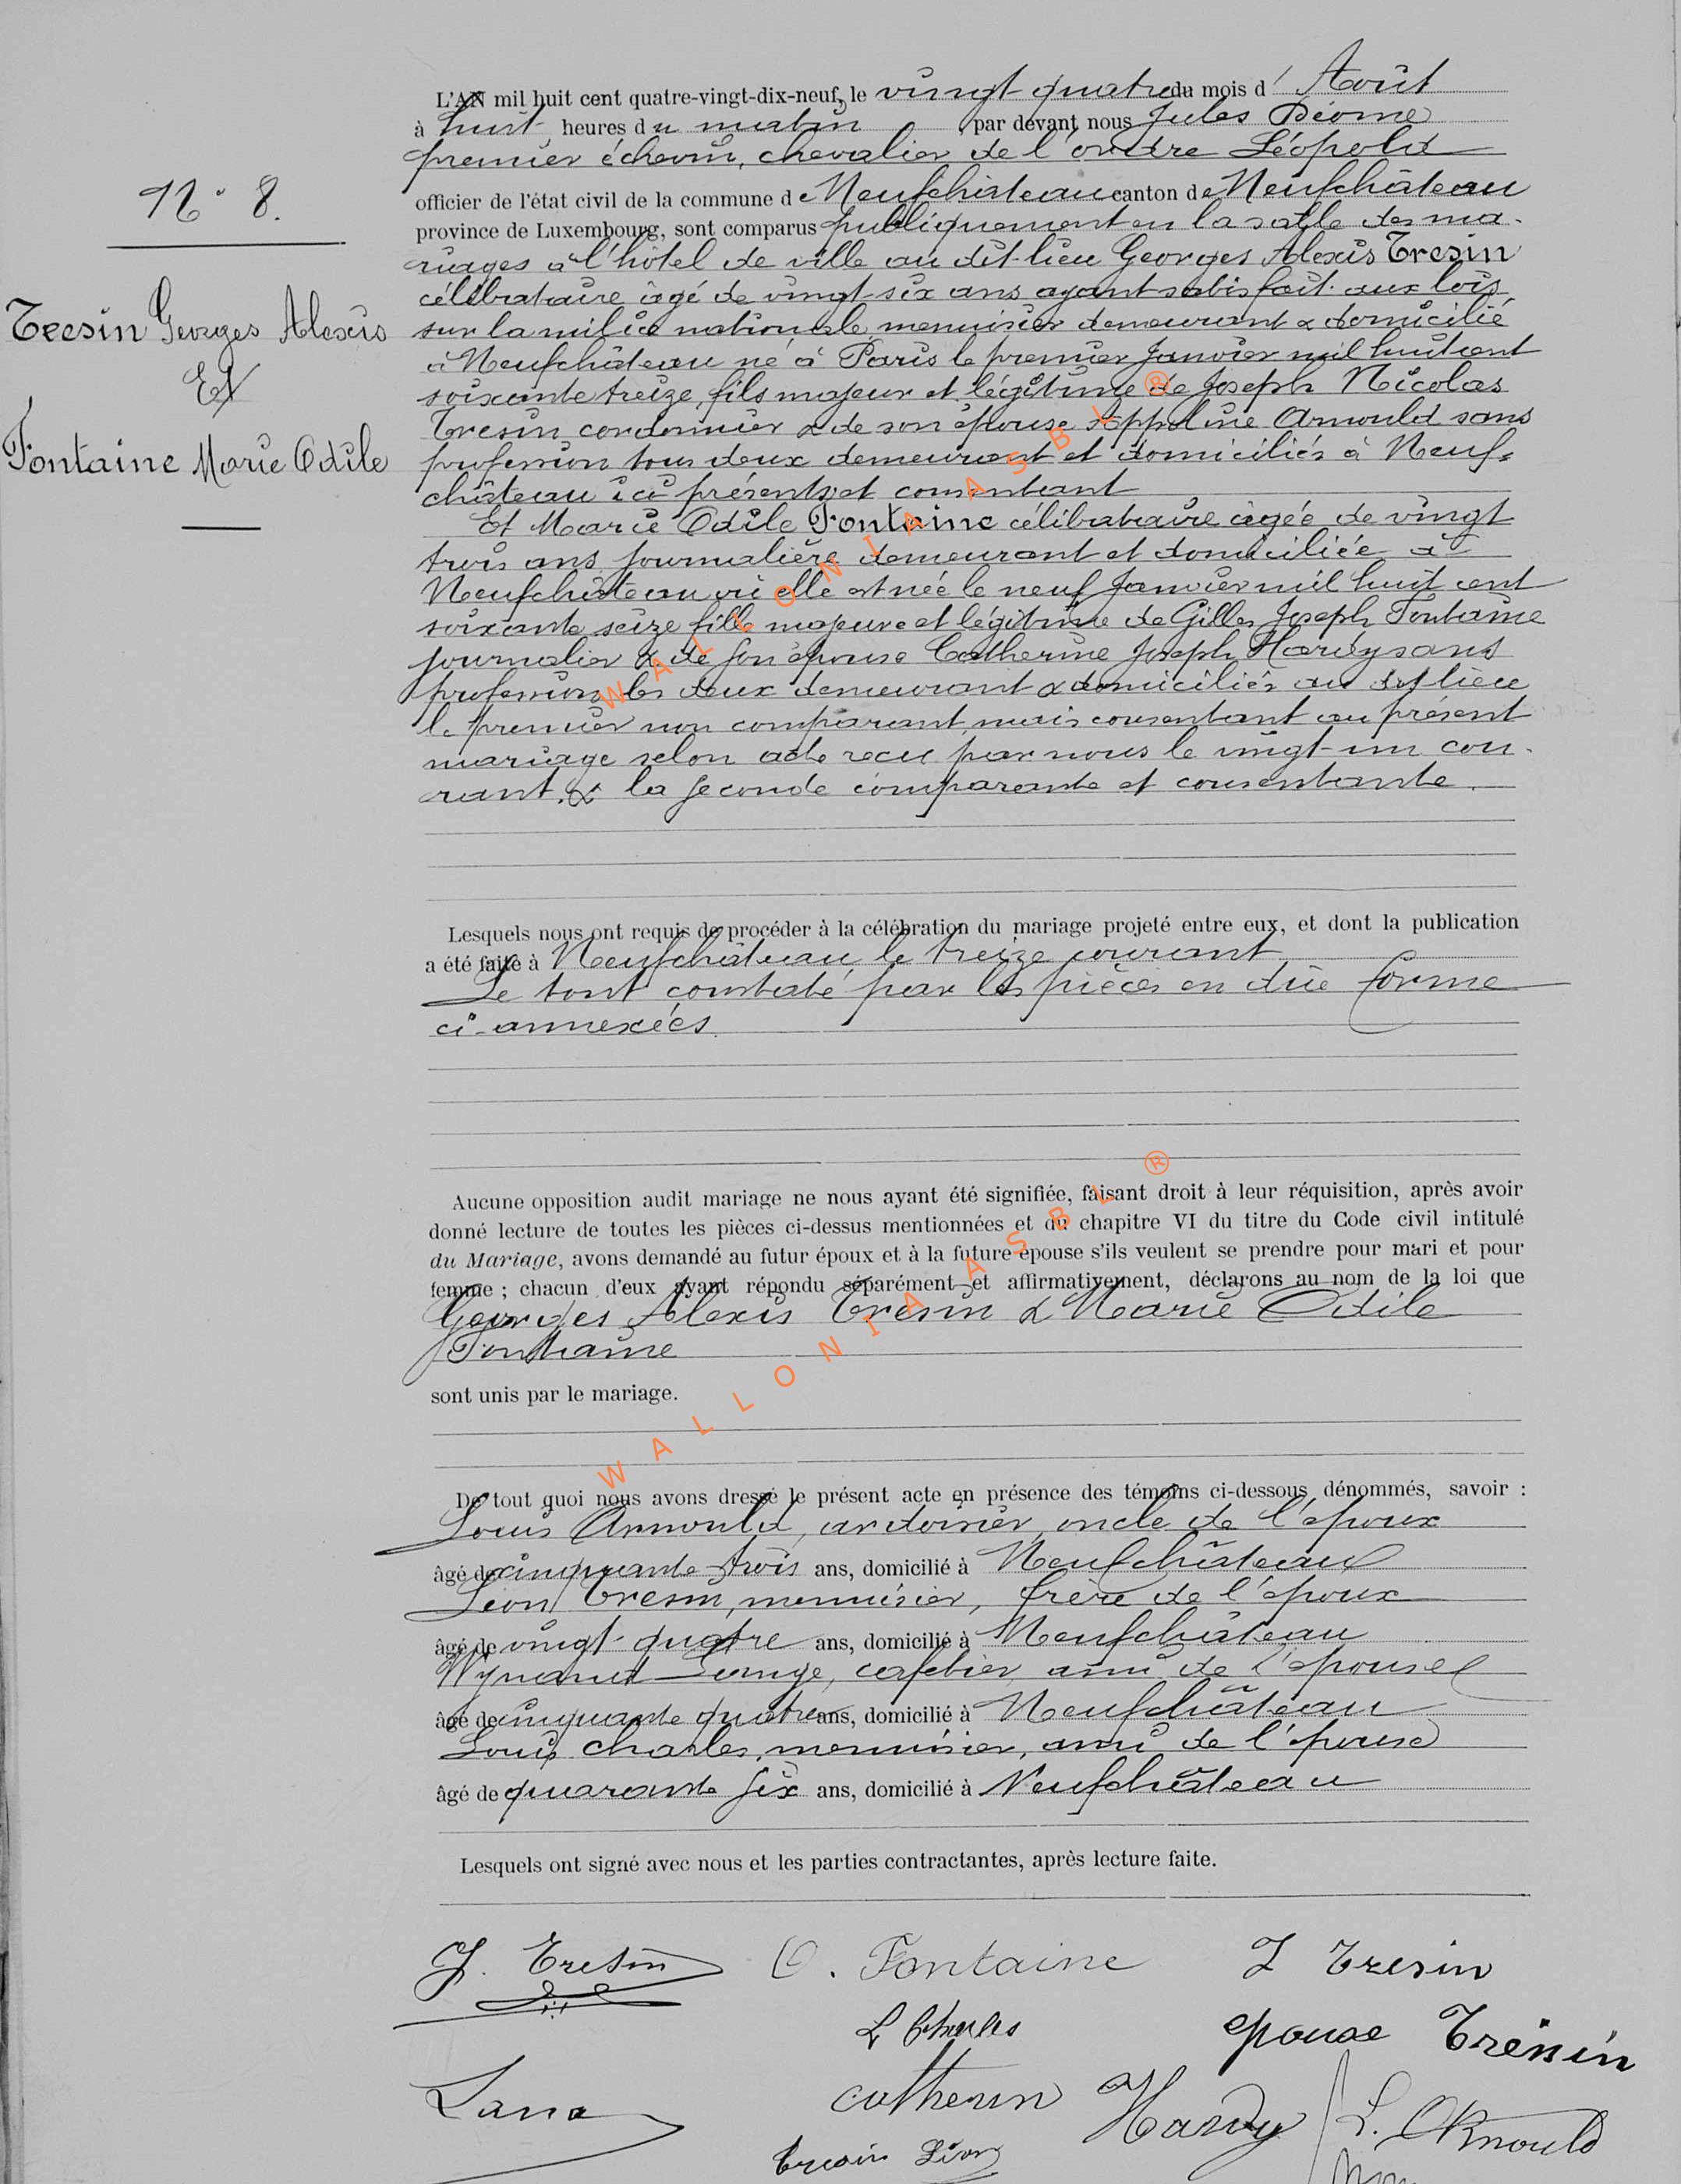 N° 8.
Tresin Georges Alexis
Et
Fontaine Marie Odile
L'AN mil huit cent quatre-vingt-dix-neuf, le vingt-quatre du mois d'Août
à huit heures du matin, par devant nous Jules Déome
premier échevin, chevalier de l'ordre Léopold
officier de l'état civil de la commune de Neufchâteau canton de Neufchâteau
province de Luxembourg, sont comparus publiquement en la salle des ma-
riages à l'hôtel de ville au dit-lieu Georges Alexis Tresin
célibataire âgé de vingt-six ans ayant satisfait aux lois
sur la milice nationale menuisier demeurant & domicilié
à Neufchâteau né à Paris le premier Janvier mil huit cent
soixante treize, fils majeur et légitime de Joseph Nicolas
Tresin cordonnier & de son épouse Appoline Arnould sans
profession tous deux demeurant et domiciliés à Neuf-
château ici présents et consentant
Et Marie Odile Fontaine célibataire âgée de vingt
trois ans journalière demeurant et domiciliée à
Neufchâteau où elle est née le neuf Janvier mil huit cent
soixante seize fille majeure et légitime de Gilles Joseph Fontaine
journalier & de son épouse Catherine Joseph Hardy sans
profession les deux demeurant & domiciliés au dit lieu
le premier non comparant, mais consentant au présent
mariage selon acte reçu par nous le vingt-un cou-
rant, & la seconde comparante et consentante.
Lesquels nous ont requis de procéder à la célébration du mariage projeté entre eux, et dont la publication
a été faite à Neufchâteau, le treize courant
Le tout constaté par les pièces en due forme
ci-annexées.
Aucune opposition audit mariage ne nous ayant été signifiée, faisant droit à leur réquisition, après avoir
donné lecture de toutes les pièces ci-dessus mentionnées et du chapitre VI du titre du Code civil intitulé
du Mariage, avons demandé au futur époux et à la future épouse s'ils veulent se prendre pour mari et pour
femme ; chacun d'eux ayant répondu séparément et affirmativement, déclarons au nom de la loi que
Georges Alexis Tresin & Marie Odile
Fontaine
sont unis par le mariage.
De tout quoi nous avons dressé le présent acte en présence des témoins ci-dessous dénommés, savoir :
Louis Arnould, ardoisier, oncle de l'époux
âgé de cinquante-trois ans, domicilié à Neufchâteau
Léon Tresin, menuisier, frère de l'époux
âgé de vingt-quatre ans, domicilié à Neufchâteau
Wynand Lange, cafetier, ami de l'épouse
âgé de cinquante quatre ans, domicilié à Neufchâteau
Louis Charles, menuisier, ami de l'épouse
âgé de quarante six ans, domicilié à Neufchâteau
Lesquels ont signé avec nous et les parties contractantes, après lecture faite.
G. Tresin O. Fontaine J Tresin
L Charles epouse Tresin
catherin Hardy L. Arnould
Tresin Léon
WALLONIA ASBL ®
WALLONIA ASBL ®